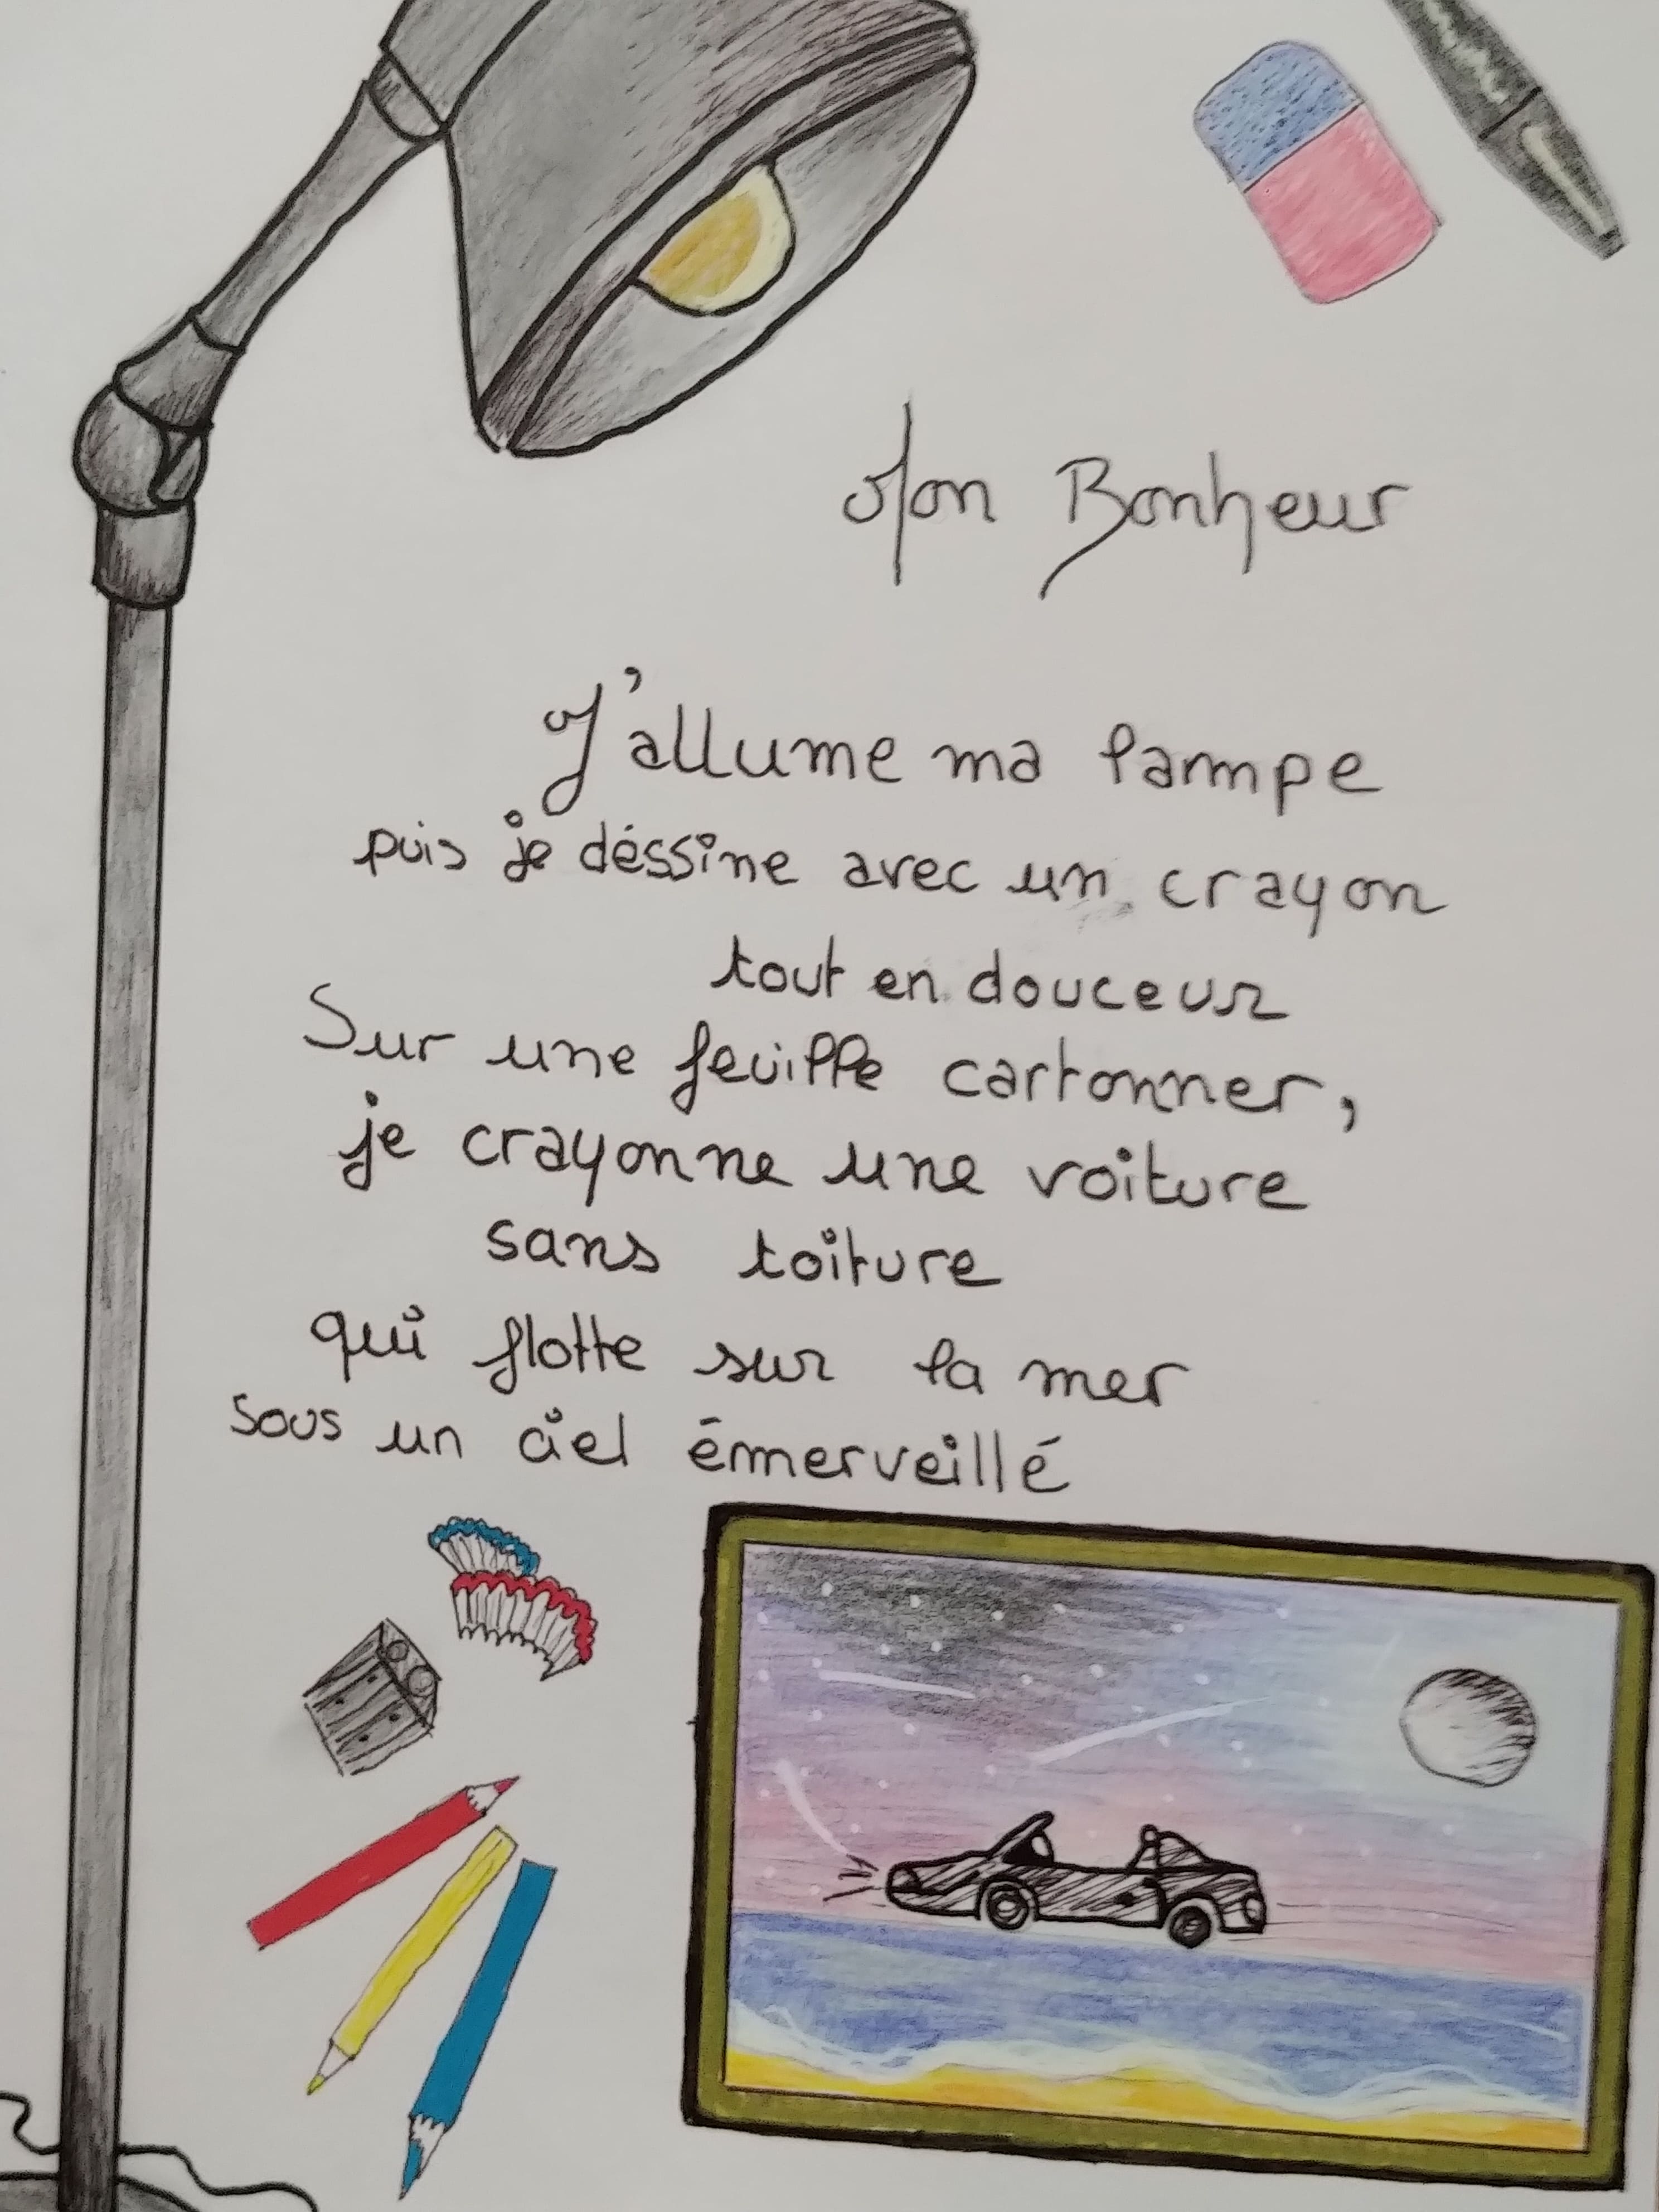 Mon Bonheur
J'allume ma lampe
puis je déssine avec un crayon
tout en douceur
Sur une feuille cartonner,
je crayonne une voiture
sans toiture
qui flotte sur la mer
sous un ciel émerveillé